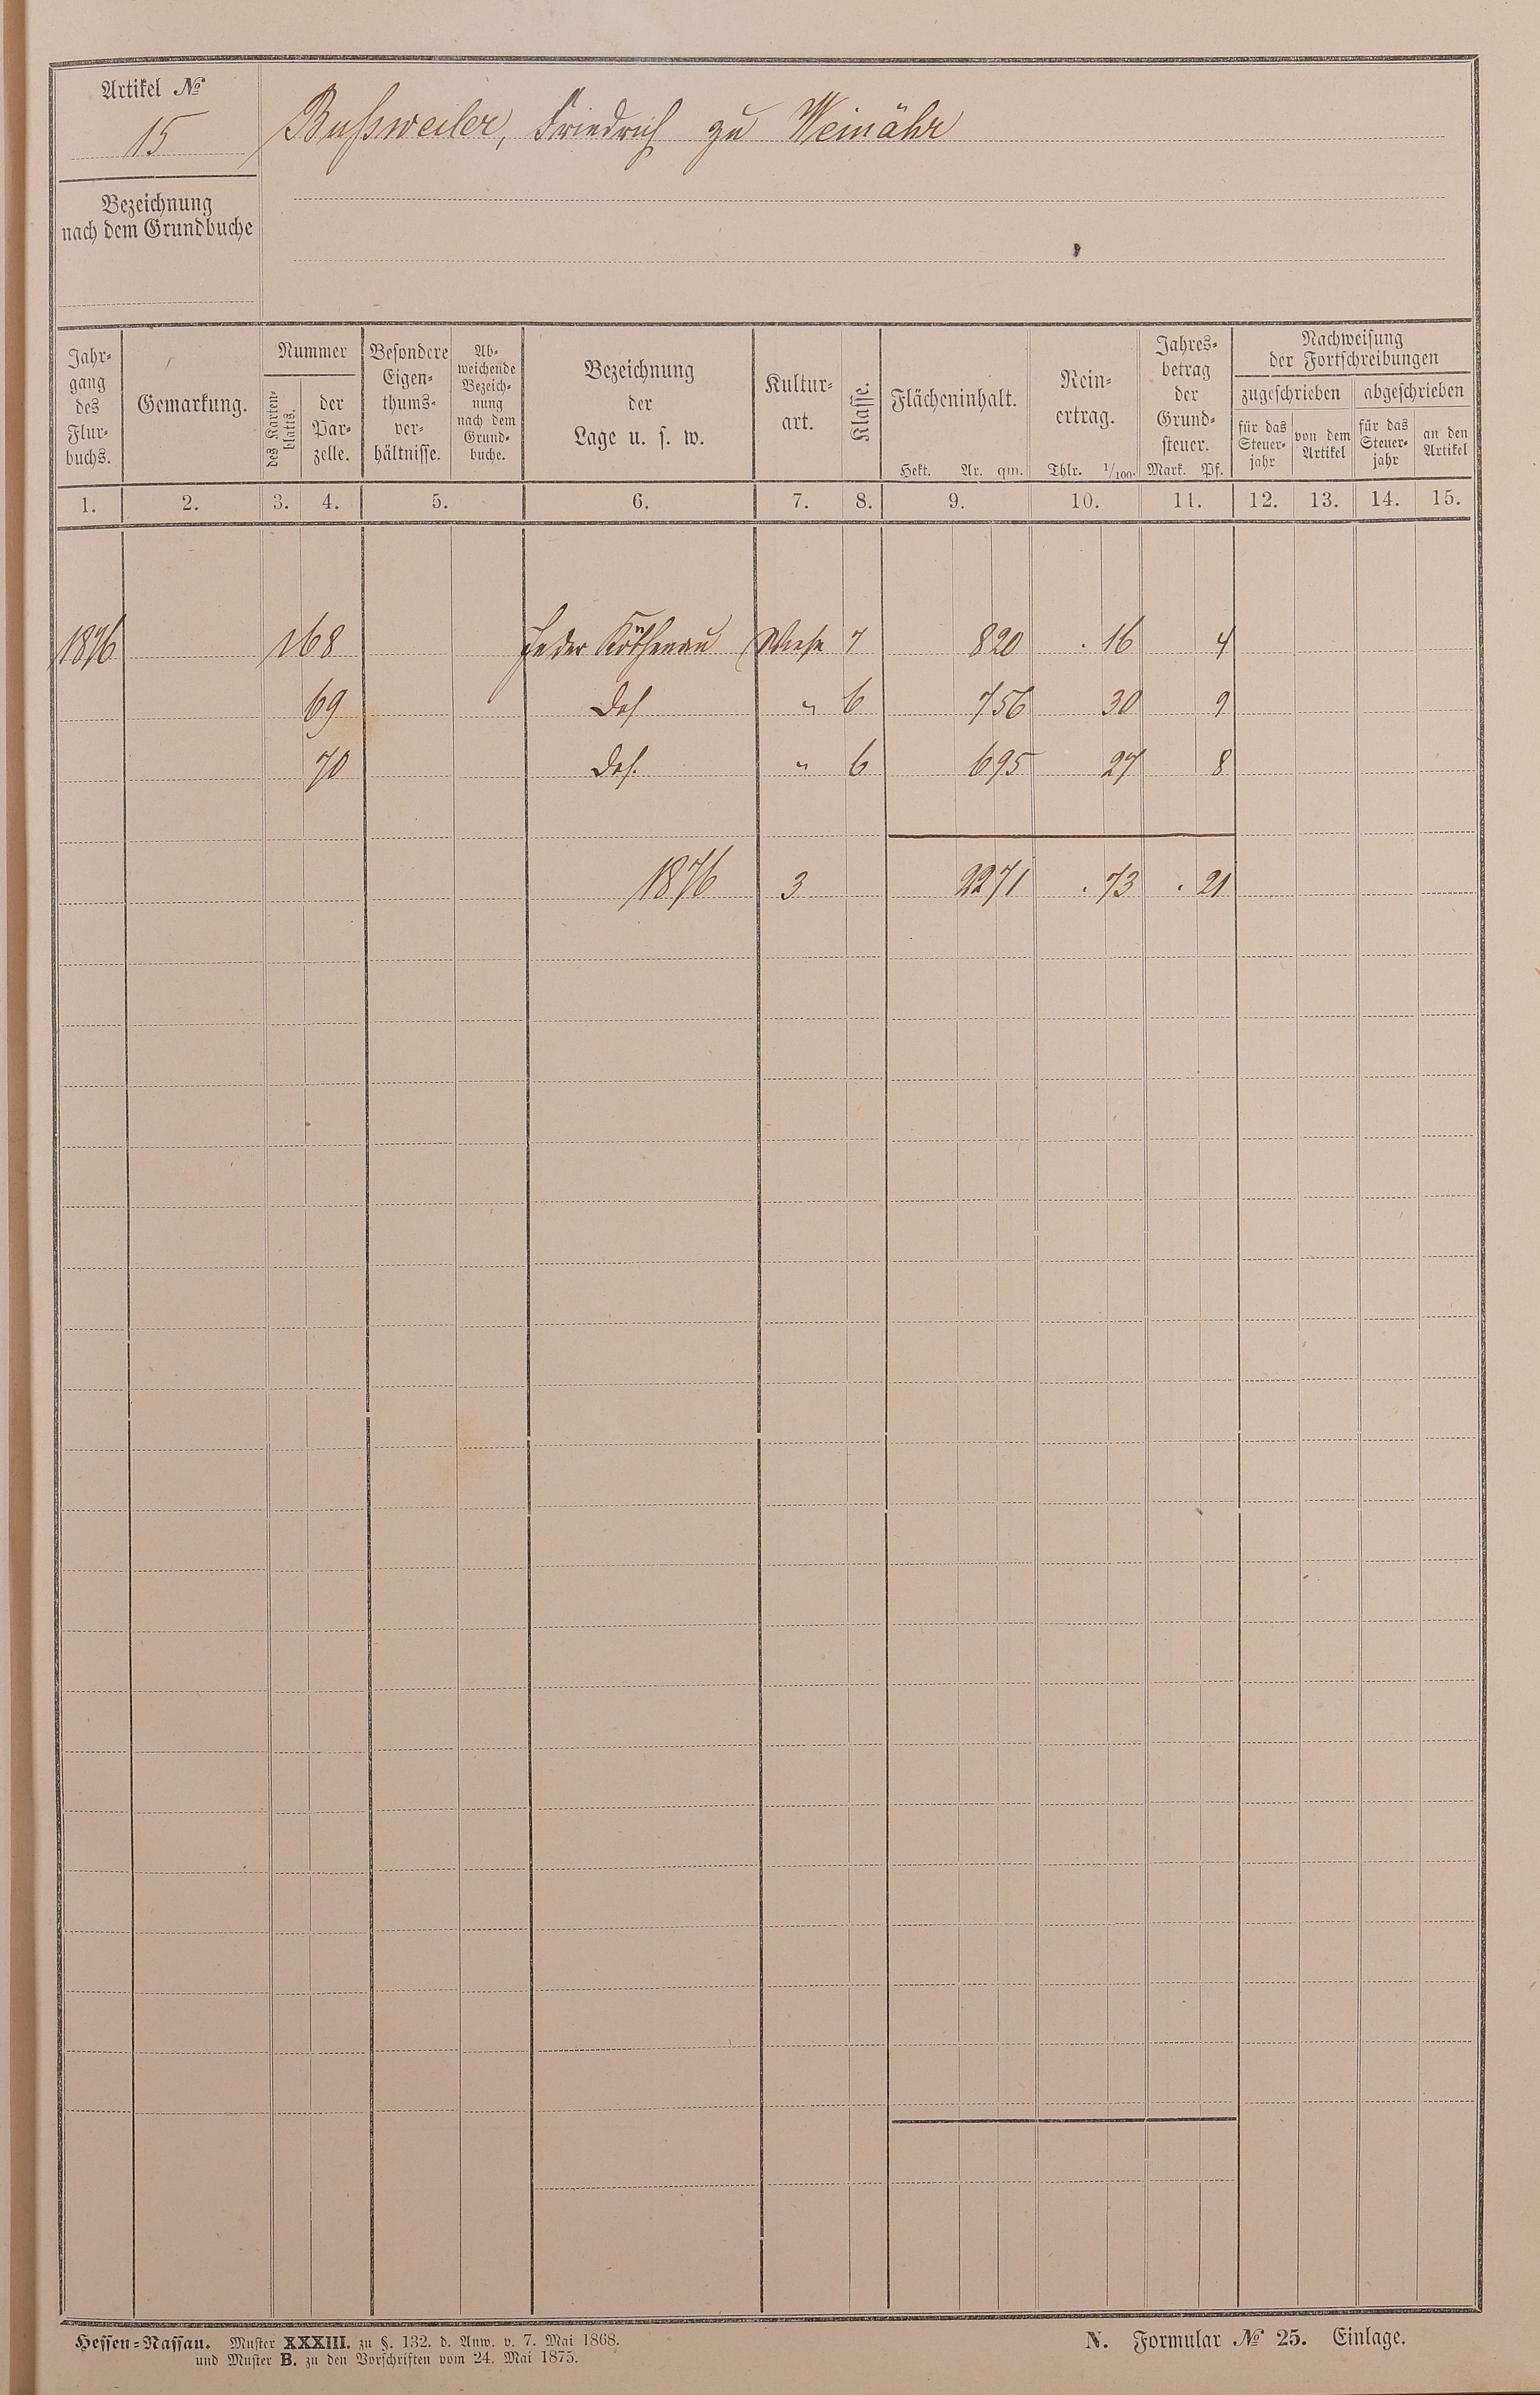 Artikel №
15
Bußweiler, Friedrich zu Weinähr
Bezeichnung
nach dem Grundbuche
Jahr-
gang
des
Flur-
buchs.
Gemarkung.
Nummer
des Karten-
blatts.
der
Par-
zelle.
Besondere
Eigen-
thums-
ver-
hältnisse.
Ab-
weichende
Bezeich-
nung
nach dem
Grund-
buche.
Bezeichnung
der
Lage u. s. w.
Kultur-
art.
Klasse.
Flächeninhalt.
Hekt. Ar. qm.
Rein-
ertrag.
Thlr. 1/100.
Jahres-
betrag
der
Grund-
steuer.
Mark. Pf.
Nachweisung
der Fortschreibungen
zugeschrieben abgeschrieben
für das
Steuer-
jahr
von dem
Artikel
für das
Steuer-
jahr
an den
Artikel
1. 2. 3. 4. 5. 6. 7. 8. 9. 10. 11. 12. 13. 14. 15.
1876 1 68 In der Wiese 7 820 . 16 4
69 Des " 6 756 30 9
70 Des. " 6 695 27 8
1876 3 2271 . 73 . 21
Hessen-Nassau. Muster XXXIII. zu §. 132. d. Anw. v. 7. Mai 1868.
und Muster B. zu den Vorschriften vom 24. Mai 1875.
N. Formular № 25. Einlage.